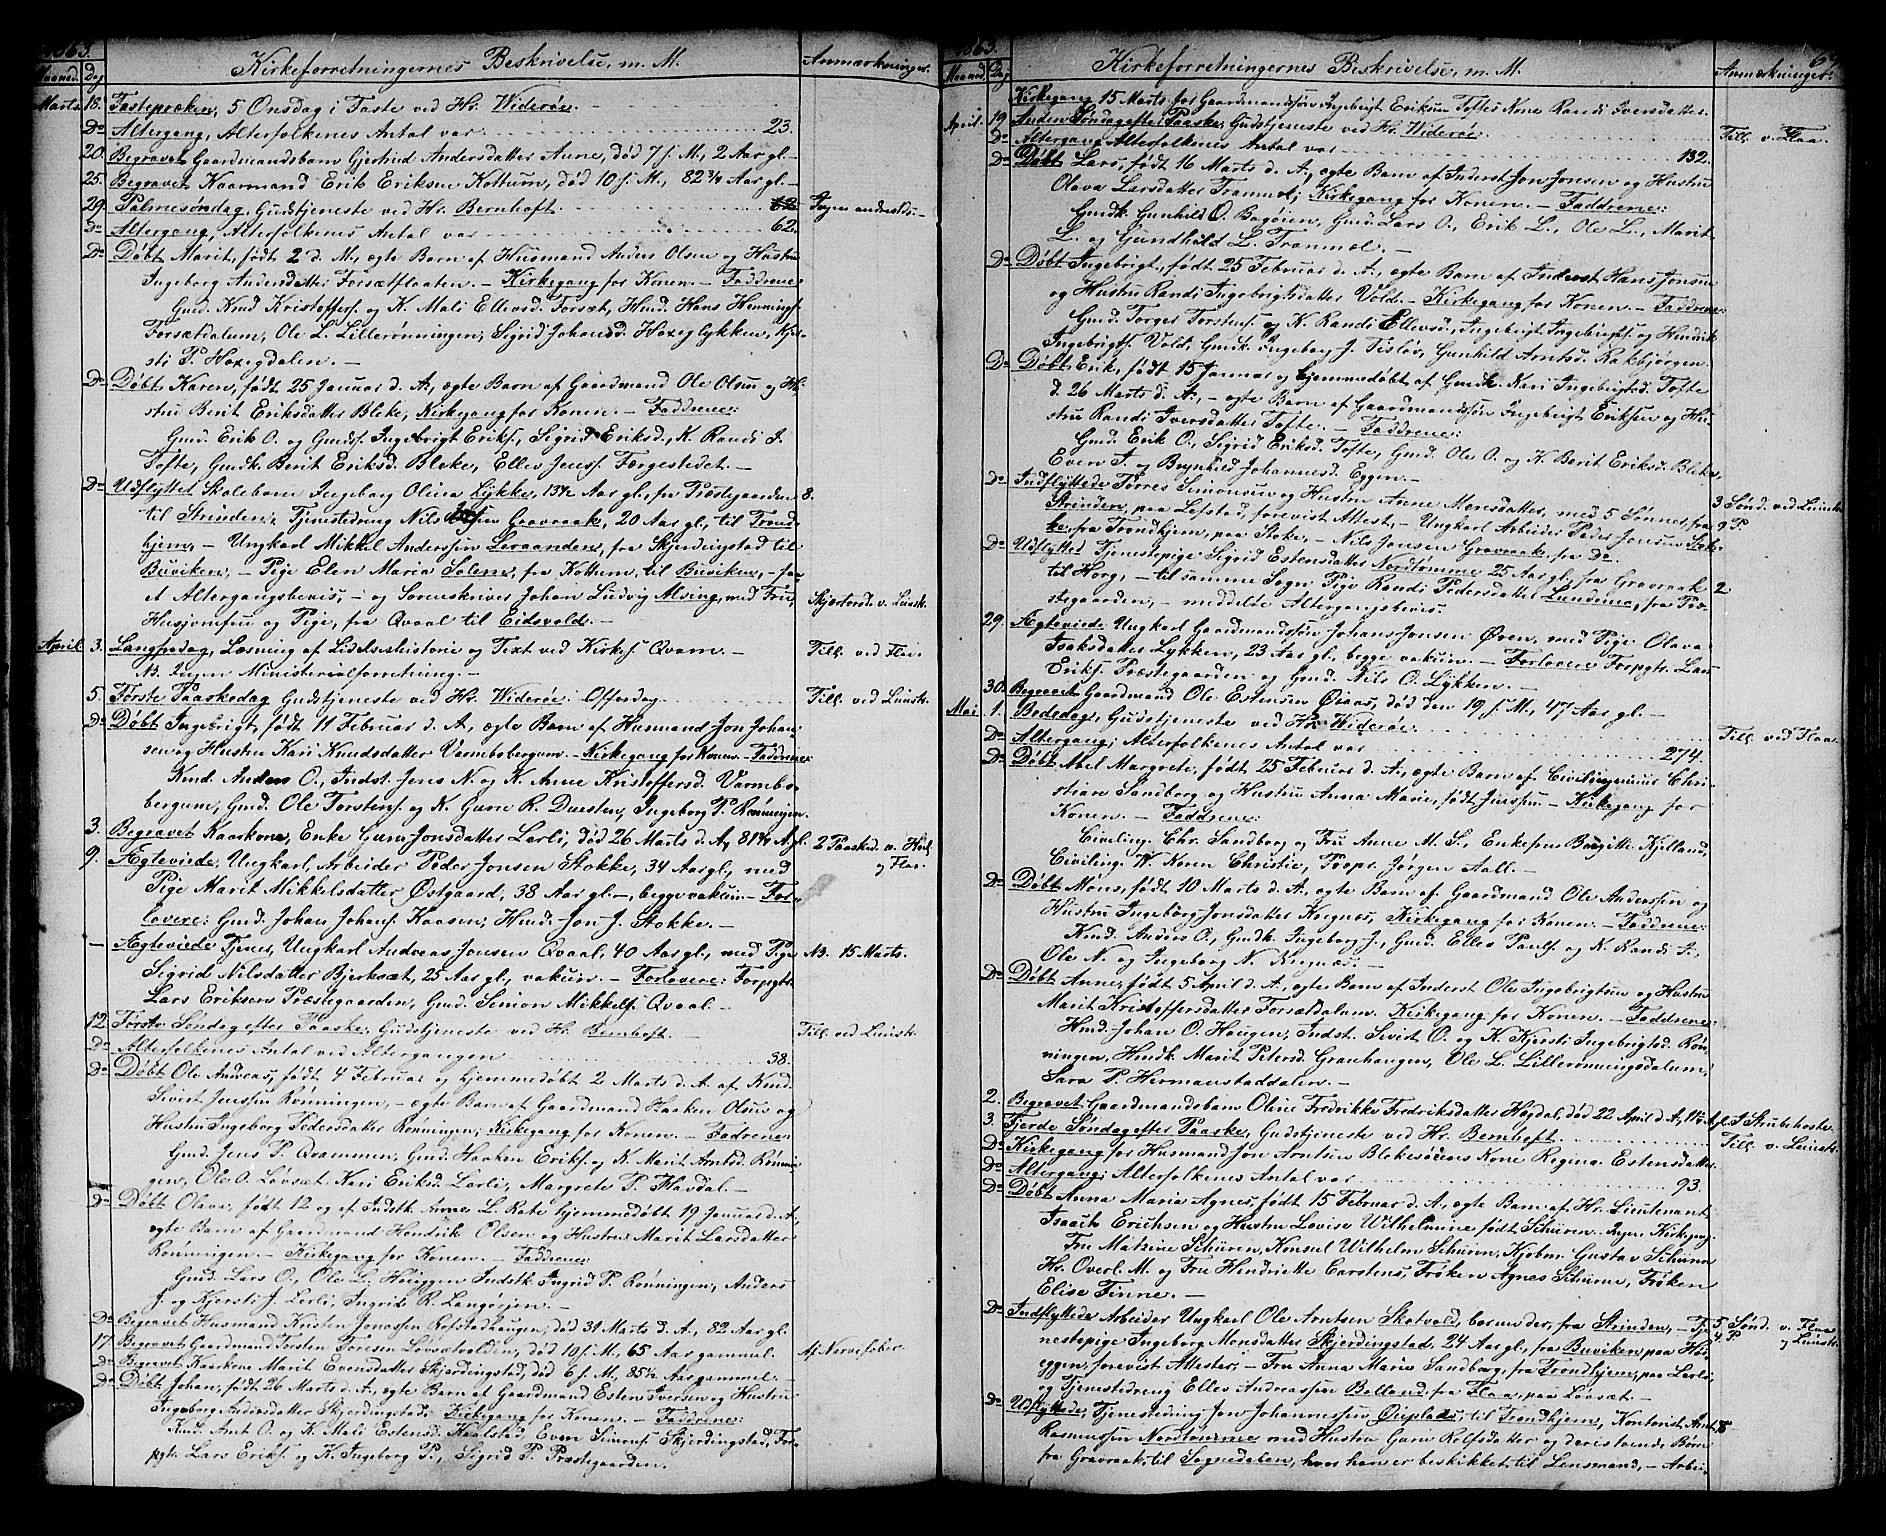 1863.
Kirkeforretningernes Beskrivelse, m. M.
Anmærkninger.
Maaned. Dag
Marts 18. Fastepræken, 5 Onsdag i Faste ved Hr. Widerøe
Do Altergang, Alterfolkenes Antal var 23.
20. Begravet Gaardmandsbarn Gjertrud Andersdatter Aune, død 7 f. M., 2 Aar gl.
25. Begravet Kaarmand Erik Eriksen Kottum, død 10 f. M., 82 3/4 Aar gl.
29. Palmesøndag, Gudstjeneste ved Hr. Bernhoft
Do Altergang, Alterfolkenes Antal var 62.
Do Døbt Marit, født 2 d. M., ægte Barn af Husmand Anders Olsen og Hustru
Ingeborg Andersdatter Forsætfloaten. – Kirkegang for Konen. – Faddrene:
Gmd. Knud Kristoffers. og K. Mali Ellevsd. Forsæt, Hmd. Hans Hennings.
Forsætdalum, Ole L. Lillerønningen, Sigrid Johansd. Hoxeglykken, Kjer-
sti P. Hoxegdalen. –
Do Døbt Karen, født 25 Januar d. A., ægte Barn af Gaardmand Ole Olsen og Hu-
stru Berit Eriksdatter Bleke, Kirkegang for Konen. – Faddrene:
Gmd. Erik O. og Gmds. Ingebrigt Eriks., Sigrid Eriksd., K. Randi I.
Tofte, Gmdk. Berit Eriksd. Bleke, Ellev Jens. Færgestedet. –
Do Udflyttet Skolebarn Ingeborg Olina Lykke, 13 1/2 Aar gl., fra Præstegaarden 8.
til Strinden, Tjenestedreng Nils Gravraak, 20 Aar gl., til Trond-
hjem, – Ungkarl Mikkel Anderssen Leraanden, fra Skjerdingstad til
Buviken, – Pige Elen Maria Solem, fra Kottum, til Buviken, –
et Altergangsbevis, – og Sorenskriver Johan Ludvig Alsing, med Fru, Skjærtorsd. v. Leinstr.
Husjomfru og Pige, fra Qvaal til Eidsvold. –
April 3. Langfredag, Læsning af Lidelseshistorie og Text ved Kirkes. Qvam. – Till. ved Flaa.
Nb. Ingen Ministerialforretning. –
5. Første Paaskedag Gudstjeneste ved Hr. Widerøe. Offerdag Till. ved Leinstr.
Do Døbt Ingebrigt, født 11 Februar d. A., ægte Barn af Husmand Jon Johan-
sen og Hustru Kari Knudsdatter Varmbobergum – Kirkegang for Konen. – Faddrene:
Kmd. Anders O., Indst. Jens N. og K. Anne Kristoffersd. Varmbo-
bergum, Gmd. Ole Torstens. og K. Guru R. Duesten, Ingeborg P. Rønningen.
3. Begravet Kaarkone, Enke Guru Jonsdatter Lerli, død 26 Marts d. A., 81 3/4 A. gl. 2 Paasked. v. Høil.
9. Ægteviede, Ungkarl, Arbeider Peder Jonsen Stokke, 34 Aar gl., med og Flaa.
Pige Marit Mikkelsdatter Østgaard, 38 Aar gl. –, begge vakuin – For-
lovere: Gmd. Johan Johans. Kaasen, Hmd. Jon J. Stokke. –
– Ægteviede Tjener, Ungkarl Andreas Jonsen Qvaal, 40 Aar gl., med Pige Nb. 15 Marts.
Sigrid Nilsdatter Bjerksæt, 25 Aar gl., vakuin. – Forlovere: Forpgtr.
Lars Eriksen Præstegaarden, Gmd. Simon Mikkels. Qvaal. –
12. Første Søndag efter Paaske, Gudstjeneste ved Hr. Bernhoft. – Till. ved Leinstr.
Do Alterfolkenes Antal ved Altergangen 38.
Do Døbt Ole Andreas, født 4 Februar og hjemmedøbt 2 Marts d. A. af Kmd.
Sivert Jenssen Rønningen, – ægte Barn af Gaardmand Haaken Olsen og
Hustru Ingeborg Pedersdatter Rønningen; Kirkegang for Konen. – Fadrene:
Gmd. Jens P. Qvammen, Gmd. Haaken Eriks. og K. Marit Arntsd. Rønnin-
gen, Ole O. Løvsæt, Kari Eriksd. Lerli, Margrete P. Havdal. –
Do Døbt Olava, født 12 og af Indstk. Anne L. Rate hjemmedøbt 19 Januar d. A.,
ægte Barn af Gaardmand Hendrik Olsen og Hustru Marit Larsdatter
Rønningen. – Kirkegang for Konen. – Faddrene:
Gmd. Lars O., Ole L. Høiggen, Indstk. Ingrid P. Rønningen, Anders
J. og Kjersti J. Lerli, Ingrid R. Langørjen. –
Do Begravet Husmand Kristen Jonassen Rofstadhaugen, død 31 Marts d. A., 82 Aar gl.
17. Begravet Gaardmand Torsten Toresen Løvsætvolden, død 10 f. M., 65 Aar gammel. Af Nervefeber.
Do Begravet Kaarkone Marit Evensdatter Skjerdingstad, død 6 f. M., 85 1/2 Aar gammel.
Do Døbt Johan, født 26 Marts d. A., ægte Barn af Gaardmand Esten Iversen og Hustru
Ingeborg Andersdatter Skjerdingstad. Kirkegang for Konen. – Faddrene:
Kmd. Arnt O. og K. Mali Estensd. Kaalstad, Even Simons. Skjerdingstad, For-
pgtr. Lars Eriks. og K. Ingeborg P., Sigrid P. Præstegaarden.
1863.
Kirkeforretningernes Beskrivelse, m. M.
Anmærkninger.
Maaned. Dag
Kirkegang 15 Marts for Gaardmandssøn Ingebrigt Eriksen Toftes Kone Randi Iversdatter.
April. 19. Anden Søndag efter Paaske, Gudstjeneste ved Hr. Widerøe. Till. v. Flaa.
Do Altergang, Alterfolkenes Antal var 132.
Do Døbt Lars, født 16 Marts d. A., ægte Barn af Inderst Jon Jonsen og Hustru
Olava Larsdatter Tranmæl; Kirkegang for Konen. – Faddrene:
Gmdk. Gunhild O. Bagøien, Gmd. Lars O., Erik L., Ole L., Marit
L. og Gundhild L. Tranmæl. –
Do Døbt Ingebrigt, født 25 Februar d. A., ægte Barn af Inderst Hans Jonsen
og Hustru Randi Ingebrigtsdatter Vold. – Kirkegang for Konen – Faddrene:
Gmd. Torger Torstens. og K. Randi Ellevsd., Ingebrigt Ingebrigts. og Hendrik
Ingebrigts. Vold, Gmdk. Ingeborg J. Tisløv, Gunhild Arntsd. Rakbjørgen.
Do Døbt Erik, født 15 Januar og hjemmedøbt af Gmdk. Kari Ingebrigtsd. Tofte
d. 26 Marts d. A., – ægte Barn af Gaardmandssøn Ingebrigt Eriksen og Hu-
stru Randi Iversdatter Tofte. – Faddrene:
Gmd. Erik O., Sigrid Eriksd. Tofte, Gmd. Ole O. og K. Berit Eriksd. Bleke,
Even I. og Brynhild Johannesd. Eggen. –
Do Indflyttede Torres Simonsen og Hustru Anne Monsdatter, med 5 Sønner, fra 3 Sønd. ved Leinstr.
Strinden, paa Lefstad, forevist Attest, – Ungkarl Arbeider Peder Jonsen Stok- 9 P
ke, fra Trondhjem, paa Stoke. – Nils Jonsen Gravraak, fra do.
Do Udflyttet Tjenestepige Sigrid Estensdatter Nordtømme 25 Aar gl., fra Gravraak
til Horg, – til samme Sogn Pige Randi Pedersdatter Lundemo, fra Præ- 2
stegaarden, – meddelte Altergangsbevis.
29. Ægteviede Ungkarl Gaardmandssøn Johans Jonsen Øven, med Pige Olava
Isaksdatter Lykken, 23 Aar gl., begge vakuin. – Forlovere Forpgtr. Lars
Eriks. Præstegaarden og Gmd. Nils O. Lykken. –
30. Begravet Gaardmand Ole Estensen Øiaas, død den 19 f. M., 47 Aar gl. –
Mai 1. Bededag, Gudstjeneste ved Hr. Widerøe. Till. ved Flaa.
Do Altergang; Alterfolkenes Antal var 274.
Do Døbt Abel Margrete, født 25 Februar d. A., ægte Barn af Civilingeniør Chri-
stian Sandberg og Hustru Anna Marie, født Jenssen – Kirkegang for
Konen. – Faddrene:
Civiling. Chr. Sandberg og Fru Anne M. S., Enkefru Birgitte Kjelland,
Civiling. W. Koren Christie, Propr. Jørgen Aall. –
Do Døbt Mons, født 10 Marts d. A., ægte Barn af Gaardmand Ole Anderssen og
Hustru Ingeborg Jonsdatter Kregnes, Kirkegang for Konen. – Faddrene:
Kmd. Anders O., Gmdk. Ingeborg J., Gmd. Ellev Pauls. og K. Randi A.,
Ole N. og Ingeborg N. Kregnæs. –
Do Døbt Anne, født 5 April d. A., ægte Barn af Inderst Ole Ingebrigtsen og Hustru
Marit Kristoffersdatter Forsætdalum. Kirkegang for Konen. – Faddrene:
Hmd. Johan O. Hoeigen, Indst. Sivert O. og K. Kjersti Ingebrigtsd. Røn-
ningen, Hmdk. Marit Petersd. Granhaugen, Ole L. Lillerønningsdalum,
Sara P. Hermanstaddalen. –
2. Begravet Gaardmandsbarn Oline Fredrikke Fredriksdatter Høgdal, død 22 April d. A., gl. Strubehoste.
3. Fjerde Søndag efter Paaske, Gudstjeneste ved Hr. Bernhoft. Till. v. Leinstr.
Do Kirkegang for Husmand Jon Arntsen Blekesøiens Kone Regina Estensdatter.
Do Altergang; Alterfolkenes Antal var 93.
Do Døbt Anna Maria Agnes, født 15 Februar d. A., ægte Barn af Hr. Lieutenant
Isaach Erichsen og Hustru Lovise Wilhelmine født Schüren. Ingen Kirkegang.
Fru Matzine Schüren, Konsul Wilhelm Schüren, Kjøbm. Gustav Schüren
Hr. Overl. M. og Fru Hendriette Carstens, Frøken Agnes Schüren, Frøken
Elise Finne. –
Do Indflyttede Arbeider Ungkarl Ole Arntsen Skotvold, fra Strinden, – Tje- 5 Sønd. v. Flaa
nestepige Ingeborg Monsdatter Skjerdingstad, 24 Aar gl., fra Buviken, paa Hø- 4 P og Leinstr.
eggen, forevist Attester. – Fru Anna Marie Sandberg, fra Trondhjem, paa Lerli,
og Tjenestedreng Ellev Andreassen Bolland, fra Flaa, paa Løvsæt. –
Do Udflyttede, Tjenestedreng Jon Johannessen Øieplads, til Trondhjem, Kontorist Arnt
Rasmussen Nordtømme med Hustru Guru Rolfsdatter og deres tvende Børn
fra Gravraak, til Sognedalen, hvor han er beskikket til Lensmand, – Arbei-